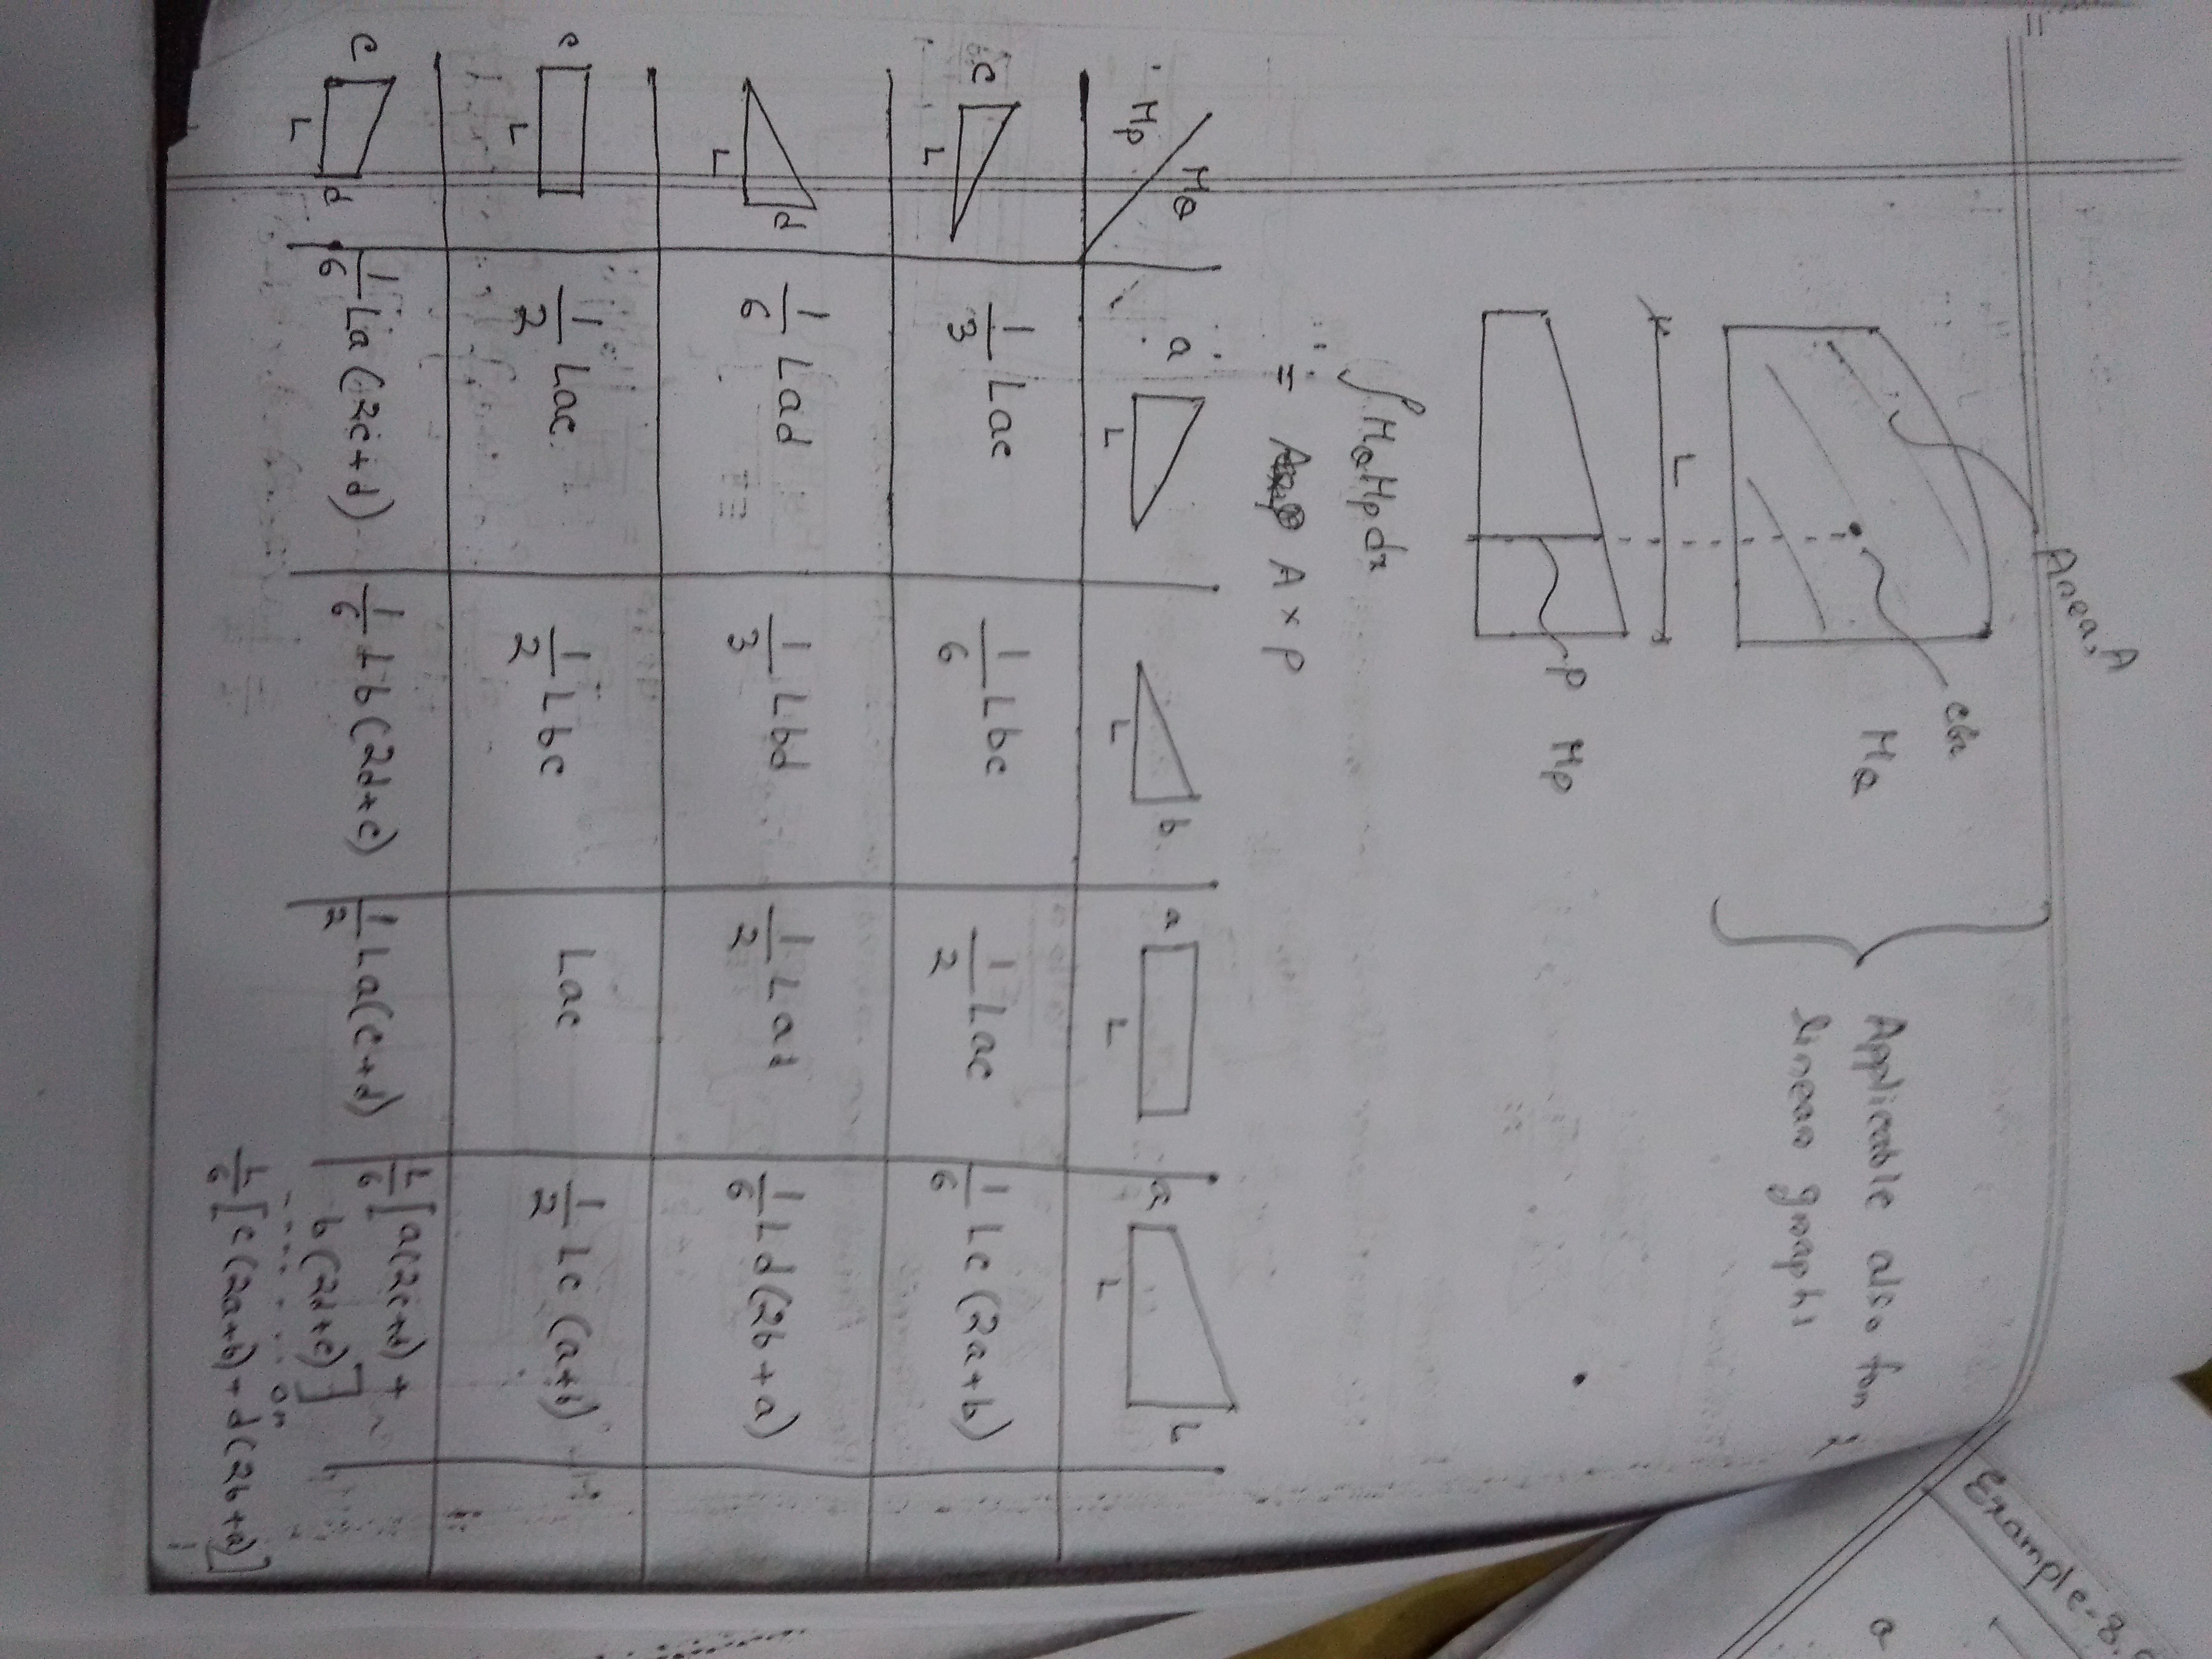 Area, A
cbr
M_Q
Applicable also for 2
linear graphs
L
P
M_P
∴ ∫M_Q M_P dx
= A × P
M_Q
M_P
a
L
L
b
a
L
a
L
b
c
L
1/3 Lac
1/6 Lbc
1/2 Lac
1/6 Lc(2a+b)
L
d
1/6 Lad
1/3 Lbd
1/2 Lad
1/6 Ld(2b+a)
c
L
1/2 Lac
1/2 Lbc
Lac
1/2 Lc(a+b)
c
L
d
1/6 La(2c+d)
1/6 Lb(2d+c)
1/2 La(c+d)
L/6[a(2c+d)+
b(2d+c)]
or
L/6[c(2a+b)+d(2b+a)]
Example-8.
a